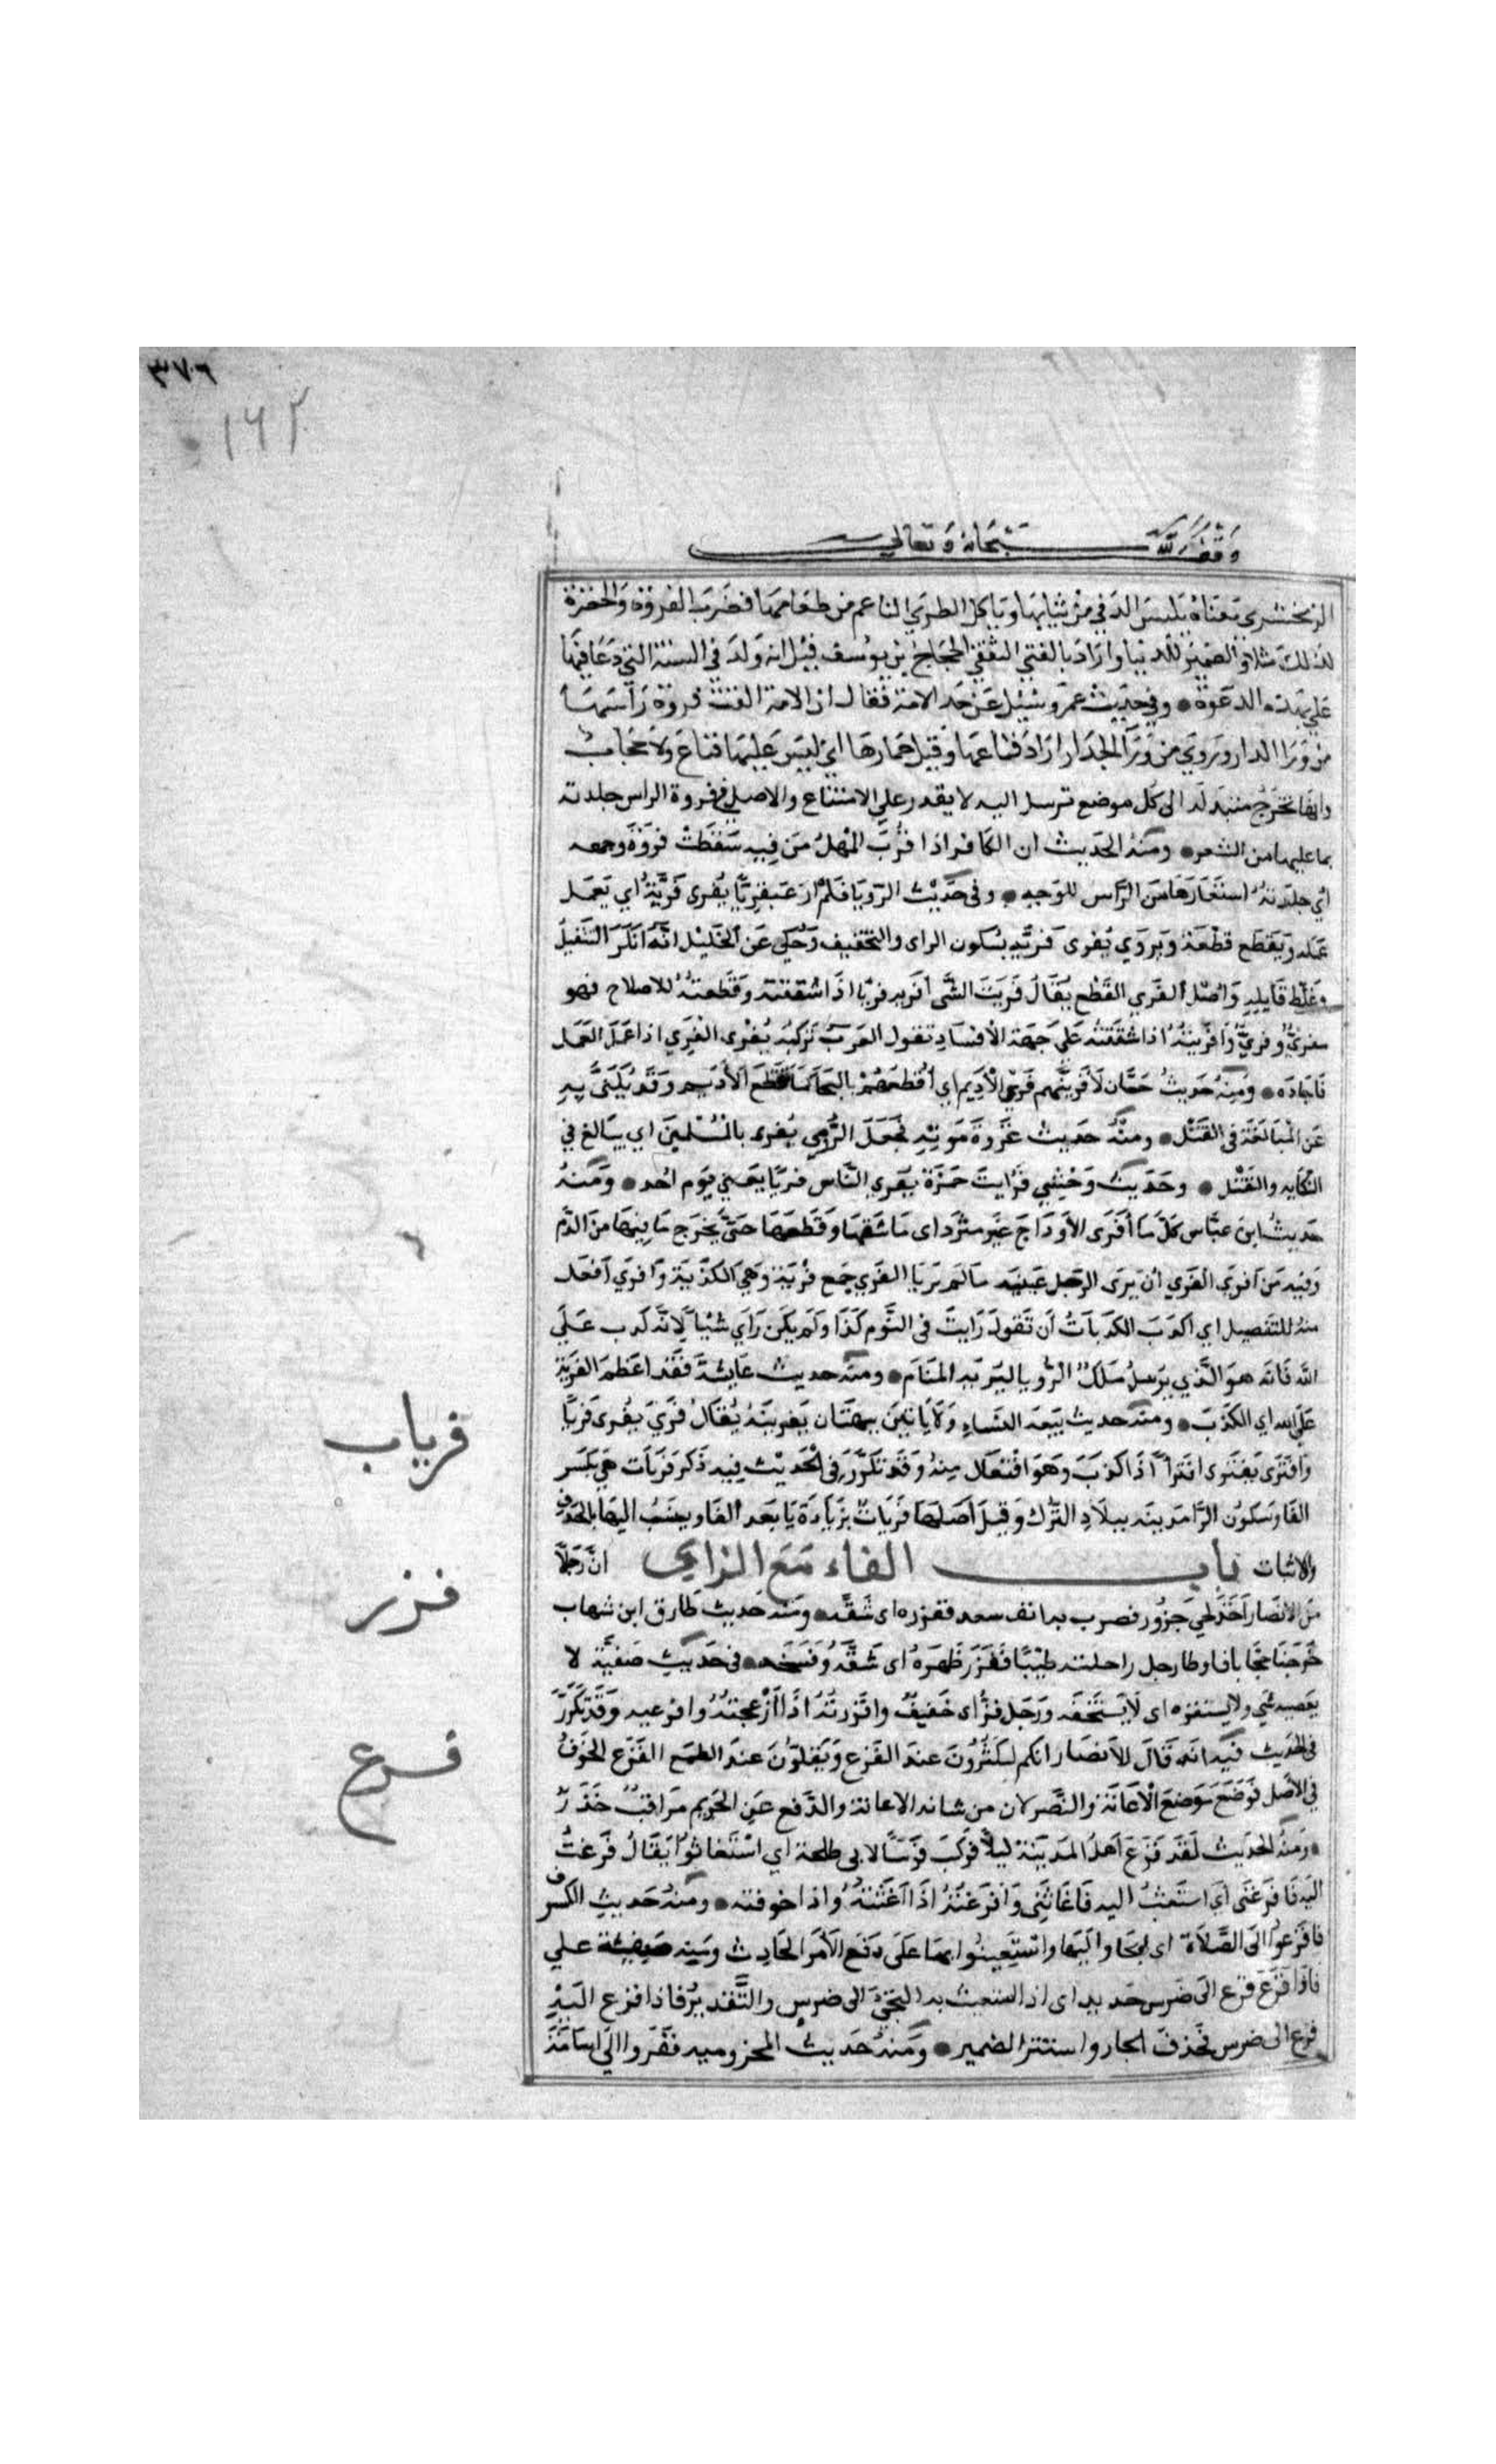 ٣٧٦
١٦٢
وقف لله سبحانه وتعالى
الزمخشري معناه يلبس الدفي من ثيابها وياكل الطري الناعم من طعامها فضرب الفروة والخضرة
لذلك مثلا والضمير للدنيا واراد بالفتي الثقفي الحجاج بن يوسف قيل انه ولد في السنة التي دعا فيها
علي بهذه الدعوة • وفي حديث عمر وسئيل عن حد الامة فقال ان الامة القت فروة راسها
من ورا الدار وروي من ورآ الجدار اراد قناعها وقيل خمارها اي ليس عليها قناع ولا حجاب
وانها تخرج متبذلة الى كل موضع ترسل اليه لا يقدر علي الامتناع والاصل في فروة الراس جلدته
بما عليها من الشعر • ومنه الحديث ان الكافر اذا قرب المهل من فيه سقطت فروة وجهه
اي جلدته استعارها من الراس للوجه • وفي حديث الرويا فلم ار عبقريا يفرى فرية اي يعمل
عمله ويقطع قطعة ويروي يفرى فريه بسكون الراى والتخفيف وحكي عن الخليل انه انكر التثقيل
وغلط قايليه واصل الفري القطع يقال فريت الشي افريه فريا اذا شققته وقطعته للاصلاح فهو
مفري وفري وافريته اذا شققته على جهة الافساد تقول العرب تركته يفرى الفري اذا عمل العمل
فاجاده • ومنه حديث حسان لافرينهم فري الاديم اي اقطعهم بالهجا كما يقطع الاديم وقد يكنى به
عن المبالغة في القتل • ومنه حديث غزوة موتة فجعل الرومي يفرى بالمسلمين اي يبالغ في
النكايه والقتل • وحديث وحشي فرايت حمزة يفري الناس فريا يعني يوم احد • ومنه
حديث ابن عباس كل ما أفرى الاوداج غير مثرد اى ما شقها وقطعها حتى يخرج ما فيها من الدم
وفيه من افرى الفري أن يرى الرجل عينيه ما لم تريا الفري جمع فرية وهي الكذبة وافري أفعل
منه للتفضيل اي اكذب الكذبات أن تقول رايت في النوم كذا ولم يكن راي شيا لانه كذب على
الله فانه هو الذي يرسل ملك الرويا ليريه المنام • ومنه حديث عايشة فقد اعظم الفرية
على الله اي الكذب • ومنه حديث بيعة النساء ولا ياتين ببهتان يفترينه يقال فري يفرى فريا
وافترى يفترى افتراءً اذا كذب وهو افتعال منه وقد تكرر في الحديث فيه ذكر فريات هي بكسر
الفا وسكون الرا مدينه ببلاد الترك وقيل أصلها فريات بزيادة يا بعد الفا وينسب اليها بالحذف
والاثبات باب الفاء مع الزاي ان رجلا
من الانصار اخذ لحي جزور فضرب به انف سعد ففزره اى شقه • ومنه حديث طارق ابن شهاب
خرجنا حجاجا فاوطا رجل راحلته ظبيا ففزر ظهره اى شقه وفسخه • في حديث صفية لا
يغضبه شي ولا يستفزه اى لا يستخفه ورجل فز اى خفيف وافززته اذا ازعجته وافزعيه وقد تكرر
في الحديث فيه انه قال للانصار انكم لتكثرون عند الفزع وتقلون عند الطمع الفزع الخوف
في الاصل فوضع موضع الاعانة والنصر لان من شانه الاعانة والدفع عن الحريم مراقب حذر
• ومنه الحديث لقد فزع اهل المدينة ليلا فركب فرسا لابي طلحة اي استغاثوا يقال فزعت
اليه فافزعني أي استغثت اليه فاغاثني وافزعته اذا اغثته واذا خوفته • ومنه حديث الكسوف
فافزعوا الى الصلاة اى الجاوا اليها واستعينوا بها على دفع الامر الحادث ومنه صفة علي
فاذا فزع فزع الى ضرس حديد اى اذا استغيث به التجئ الى ضرس والتقدير فاذا فزع اليه
فزع الى ضرس فحذف الجار واستتر الضمير • ومنه حديث المخزوميه ففزعوا الى اسامة
فرياب
فزر
فزع